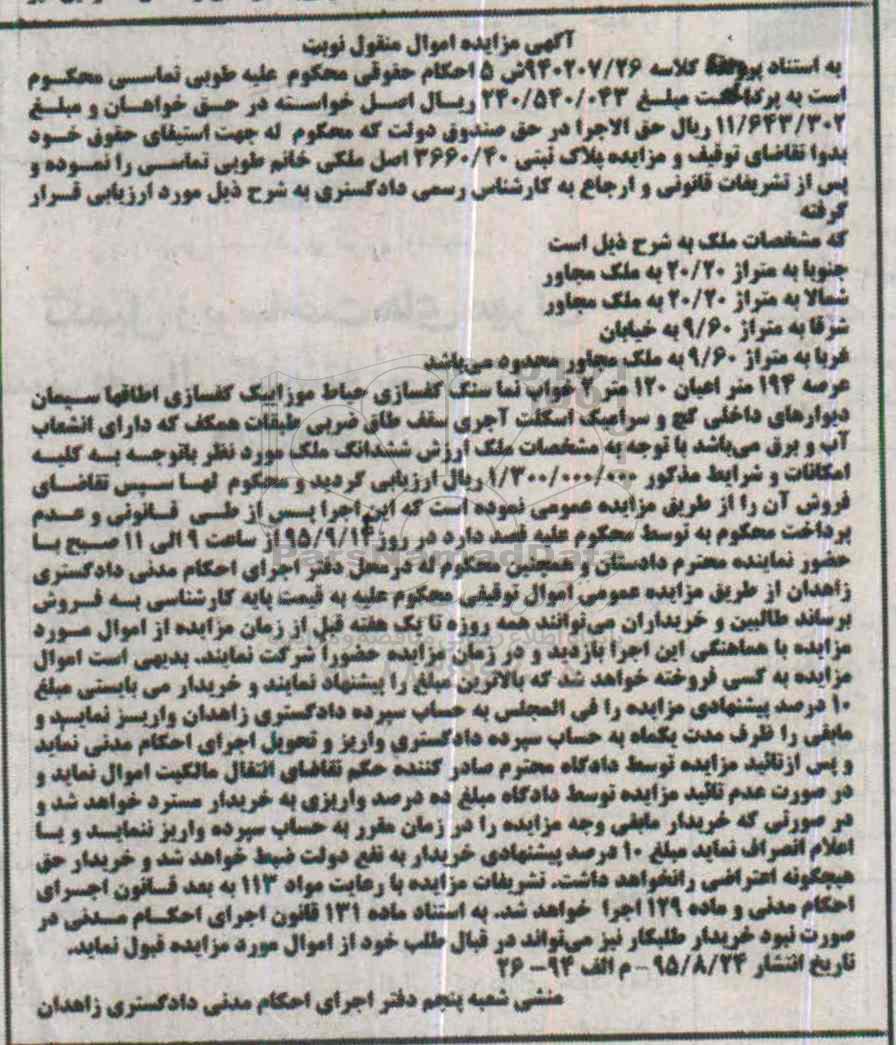 آگهی مزایده اموال منقول نوبت
به استناد پرونده کلاسه ۹۴۰۲۰۷/۲۶ش ۵ احکام حقوقی محکوم علیه طوبی تماسی محکوم
است به پرداخت مبلغ ۲۴۰/۵۴۰/۰۴۳ ریال اصل خواسته در حق خواهان و مبلغ
۱۱/۶۴۳/۳۰۲ ریال حق الاجرا در حق صندوق دولت که محکوم له جهت استیفای حقوق خود
بدوا تقاضای توقیف و مزایده پلاک ثبتی ۳۶۶۰/۴۰ اصل ملکی خانم طوبی تماسی را نموده و
پس از تشریفات قانونی و ارجاع به کارشناس رسمی دادگستری به شرح ذیل مورد ارزیابی قرار
گرفته
که مشخصات ملک به شرح ذیل است
جنوبا به متراژ ۲۰/۲۰ به ملک مجاور
شمالا به متراژ ۲۰/۲۰ به ملک مجاور
شرقا به متراژ ۹/۶۰ به خیابان
غربا به متراژ ۹/۶۰ به ملک مجاور محدود می‌باشد
عرصه ۱۹۴ متر اعیان ۱۲۰ متر ۲ خواب نما سنگ کفسازی حیاط موزاییک کفسازی اطاقها سیمان
دیوارهای داخلی گچ و سرامیک اسکلت آجری سقف طاق ضربی طبقات همکف که دارای انشعاب
آب و برق می‌باشد با توجه به مشخصات ملک ارزش ششدانگ ملک مورد نظر باتوجه به کلیه
امکانات و شرایط مذکور ۱/۳۰۰/۰۰۰/۰۰۰ ریال ارزیابی گردید و محکوم لها سپس تقاضای
فروش آن را از طریق مزایده عمومی نموده است که این اجرا پس از طی قانونی و عدم
پرداخت محکوم به توسط محکوم علیه قصد دارد در روز ۹۵/۹/۱۴ از ساعت ۹ الی ۱۱ صبح با
حضور نماینده محترم دادستان و همچنین محکوم له در محل دفتر اجرای احکام مدنی دادگستری
زاهدان از طریق مزایده عمومی اموال توقیفی محکوم علیه به قیمت پایه کارشناسی به فروش
برساند طالبین و خریداران می‌توانند همه روزه تا یک هفته قبل از زمان مزایده از اموال مورد
مزایده با هماهنگی این اجرا بازدید و در زمان مزایده حضورا شرکت نمایند. بدیهی است اموال
مزایده به کسی فروخته خواهد شد که بالاترین مبلغ را پیشنهاد نمایند و خریدار می بایستی مبلغ
۱۰ درصد پیشنهادی مزایده را فی المجلس به حساب سپرده دادگستری زاهدان واریز نماید و
مابقی را ظرف مدت یکماه به حساب سپرده دادگستری واریز و تحویل اجرای احکام مدنی نماید
و پس ازتائید مزایده توسط دادگاه محترم صادر کننده حکم تقاضای انتقال مالکیت اموال نماید و
در صورت عدم تائید مزایده توسط دادگاه مبلغ ده درصد واریزی به خریدار مسترد خواهد شد و
در صورتی که خریدار مابقی وجه مزایده را در زمان مقرر به حساب سپرده واریز ننماید و یا
اعلام انصراف نماید مبلغ ۱۰ درصد پیشنهادی خریدار به نفع دولت ضبط خواهد شد و خریدار حق
هیچگونه اعتراضی رانخواهد داشت. تشریفات مزایده با رعایت مواد ۱۱۳ به بعد قانون اجرای
احکام مدنی و ماده ۱۲۹ اجرا خواهد شد. به استناد ماده ۱۳۱ قانون اجرای احکام مدنی در
صورت نبود خریدار طلبکار نیز می‌تواند در قبال طلب خود از اموال مورد مزایده قبول نماید.
تاریخ انتشار ۹۵/۸/۲۴ – م الف ۹۴- ۲۶
منشی شعبه پنجم دفتر اجرای احکام مدنی دادگستری زاهدان
ParsNamadData